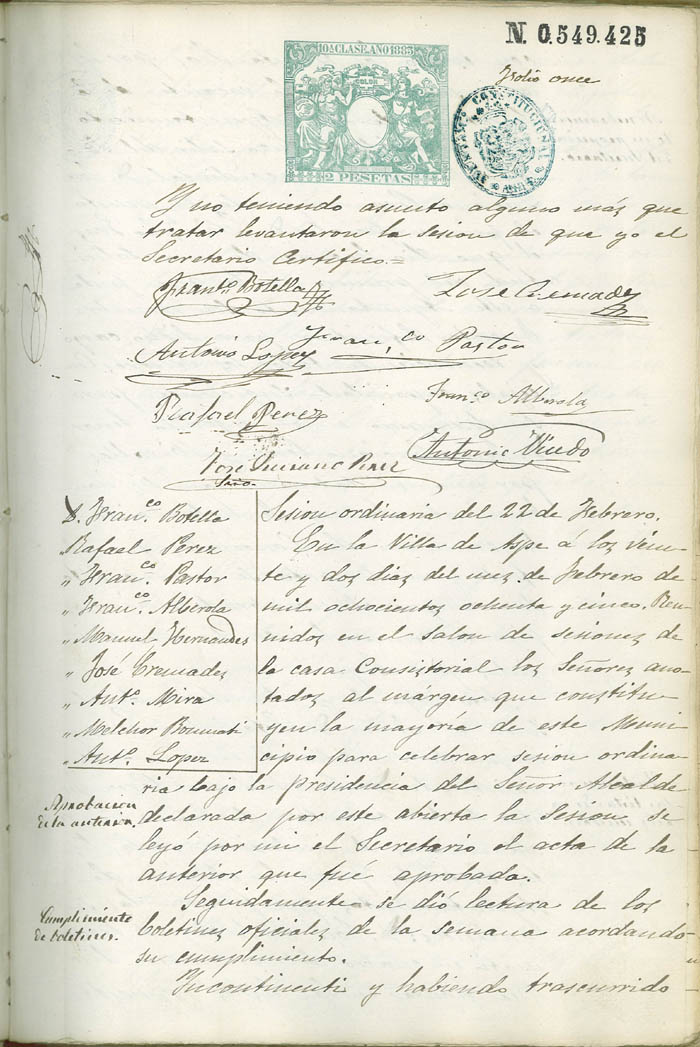 N. 0.549.425
10ª CLASE. AÑO 1885
2 PESETAS
Folio once
CONSTITUCIONAL
Y no teniendo asunto alguno más que
tratar levantaron la sesion de que yo el
Secretario Certifico.=
Franc.º Botella
José Cremades
Antonio Lopez
Fran.co Pastor
Rafael Perez
Fran.co Alberola
Antonio
José Perez
Srio.
D. Fran.co Botella
Rafael Perez
" Fran.co Pastor
" Fran.co Alberola
" Manuel Hernandes
" José Cremades
" Ant.º Mira
" Melchor
" Ant.º Lopez
Sesion ordinaria del 22 de Febrero.
En la Villa de Aspe á los vein-
te y dos dias del mes de Febrero de
mil ochocientos ochenta y cinco. Reu-
nidos en el salon de sesiones de
la casa Consistorial los Señores ano-
tados al márgen que constitu-
yen la mayoría de este Muni-
cipio para celebrar sesion ordina-
ria bajo la presidencia del Señor Alcalde
declarada por este abierta la sesion se
leyó por mi el Secretario el acta de la
anterior que fué aprobada.
Aprobacion
de la anterior.
Seguidamente se dió lectura de los
boletines oficiales de la semana acordando
su cumplimiento.
Cumplimiento
de boletines.
Incontinenti y habiendo trascurrido